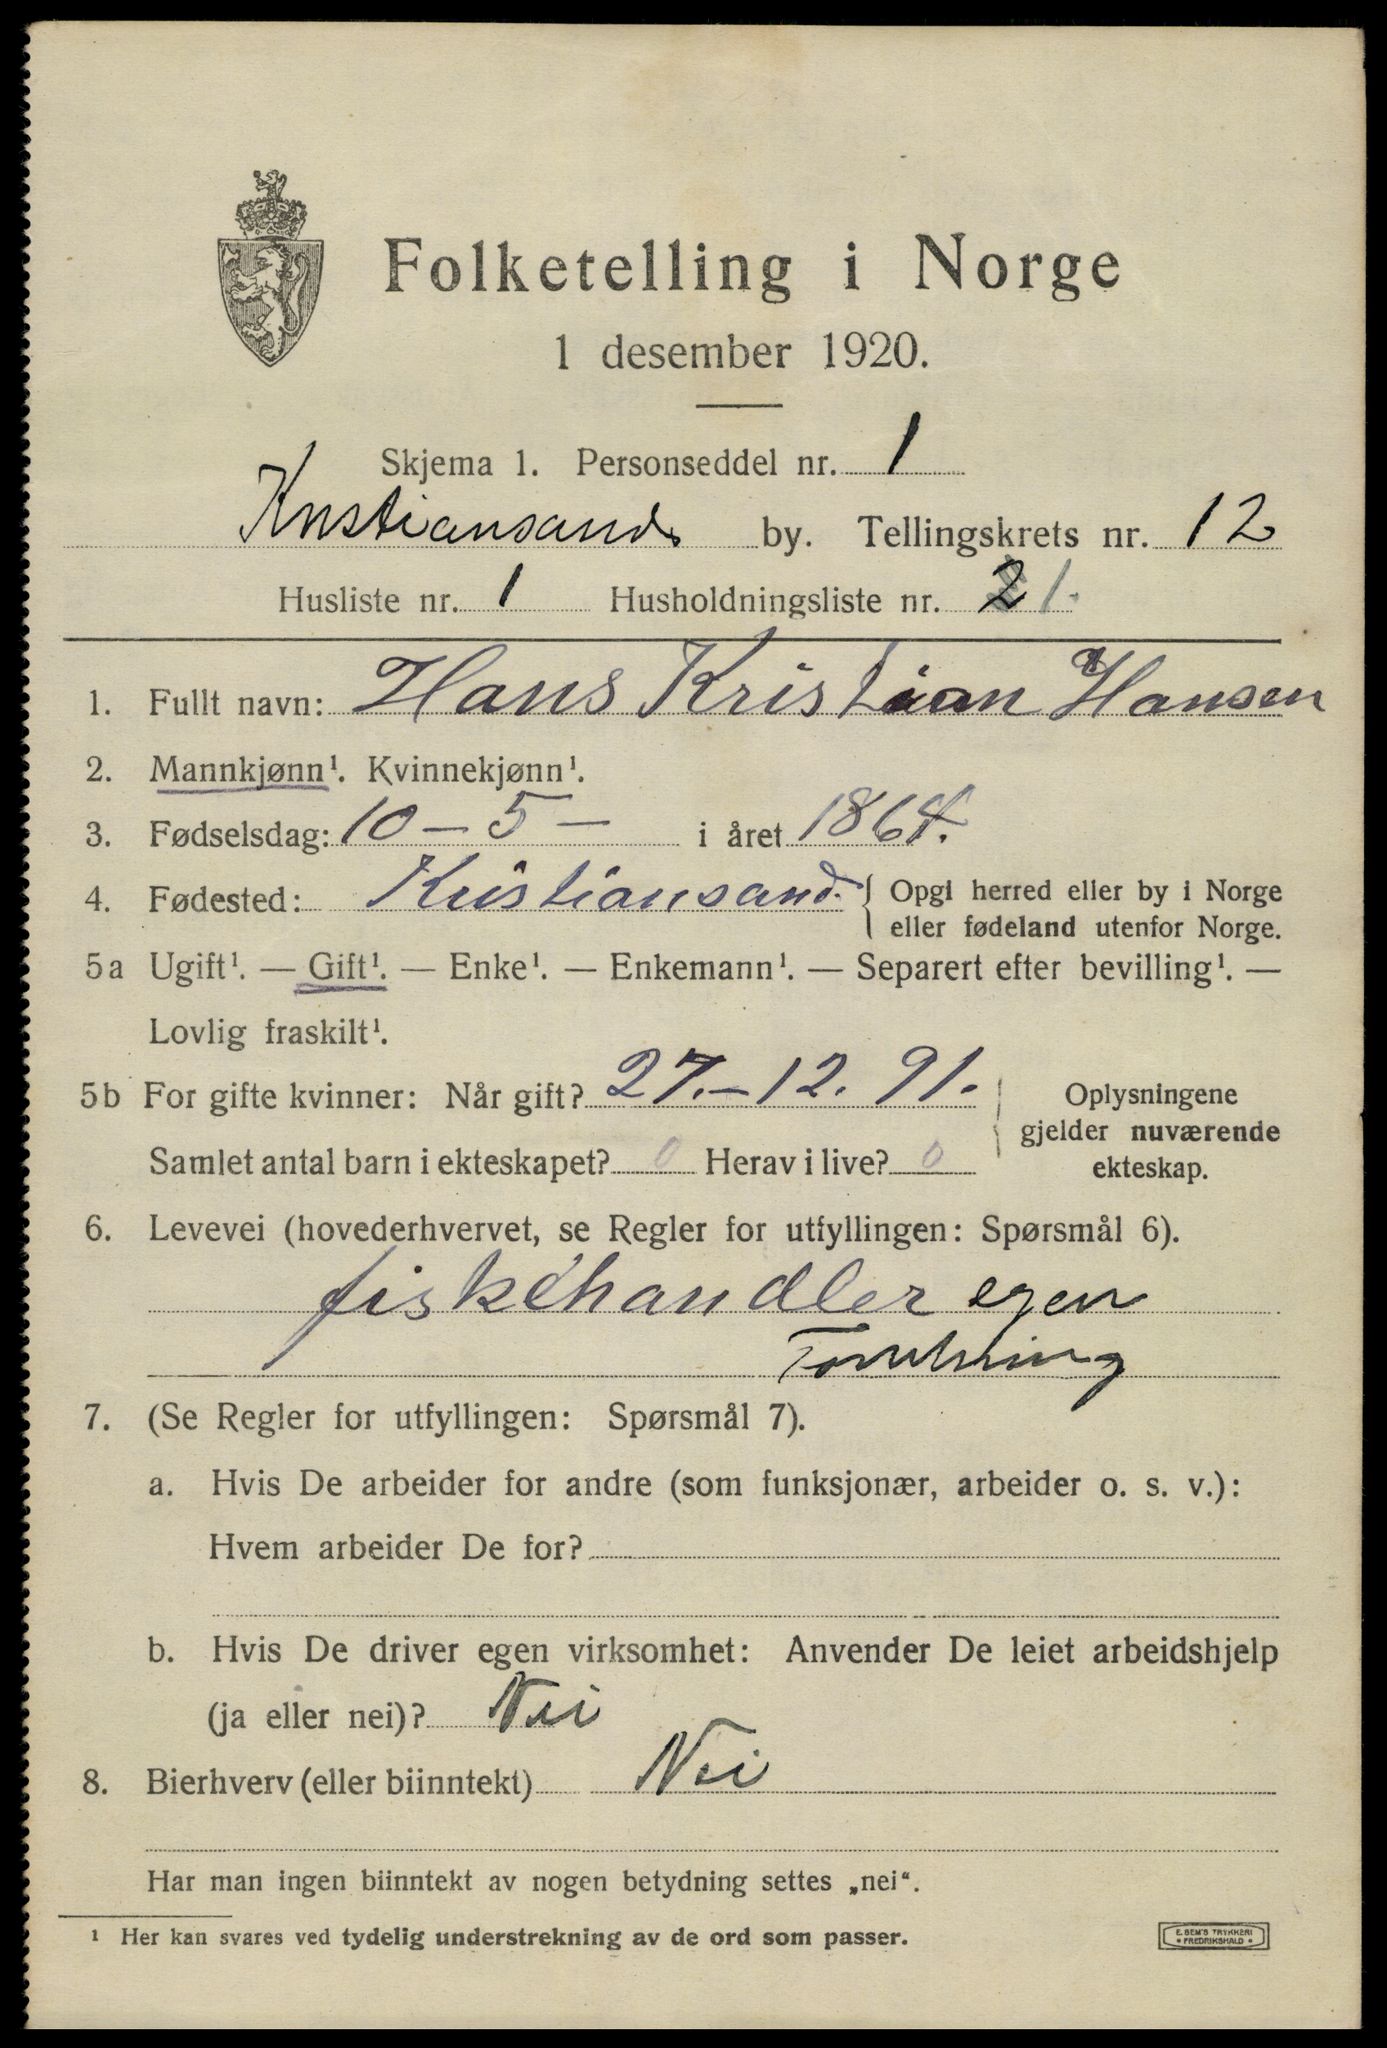 Folketelling i Norge
1 desember 1920.
Skjema 1. Personseddel nr. 1
Kristiansand by. Tellingskrets nr. 12
Husliste nr. 1 Husholdningsliste nr. 2 1.
1. Fullt navn: Hans Kristian Hansen
2. Mannkjønn¹. Kvinnekjønn¹.
3. Fødselsdag: 10 - 5 - i året 1864.
4. Fødested: Kristiansand. { Opgi herred eller by i Norge
eller fødeland utenfor Norge.
5a Ugift¹. — Gift¹. — Enke¹. — Enkemann¹. — Separert efter bevilling¹. —
Lovlig fraskilt¹.
5b For gifte kvinner: Når gift? 27. - 12. 91.
Samlet antal barn i ekteskapet? 0 Herav i live? 0
Oplysningene
gjelder nuværende
ekteskap.
6. Levevei (hovederhvervet, se Regler for utfyllingen: Spørsmål 6).
fiskehandler egen
Forretning
7. (Se Regler for utfyllingen: Spørsmål 7).
a. Hvis De arbeider for andre (som funksjonær, arbeider o. s. v.):
Hvem arbeider De for?
b. Hvis De driver egen virksomhet: Anvender De leiet arbeidshjelp
(ja eller nei)? Nei
8. Bierhverv (eller biinntekt) Nei
Har man ingen biinntekt av nogen betydning settes „nei“.
¹ Her kan svares ved tydelig understrekning av de ord som passer.
E. SEM'S TRYKKERI
* FREDRIKSHALD *